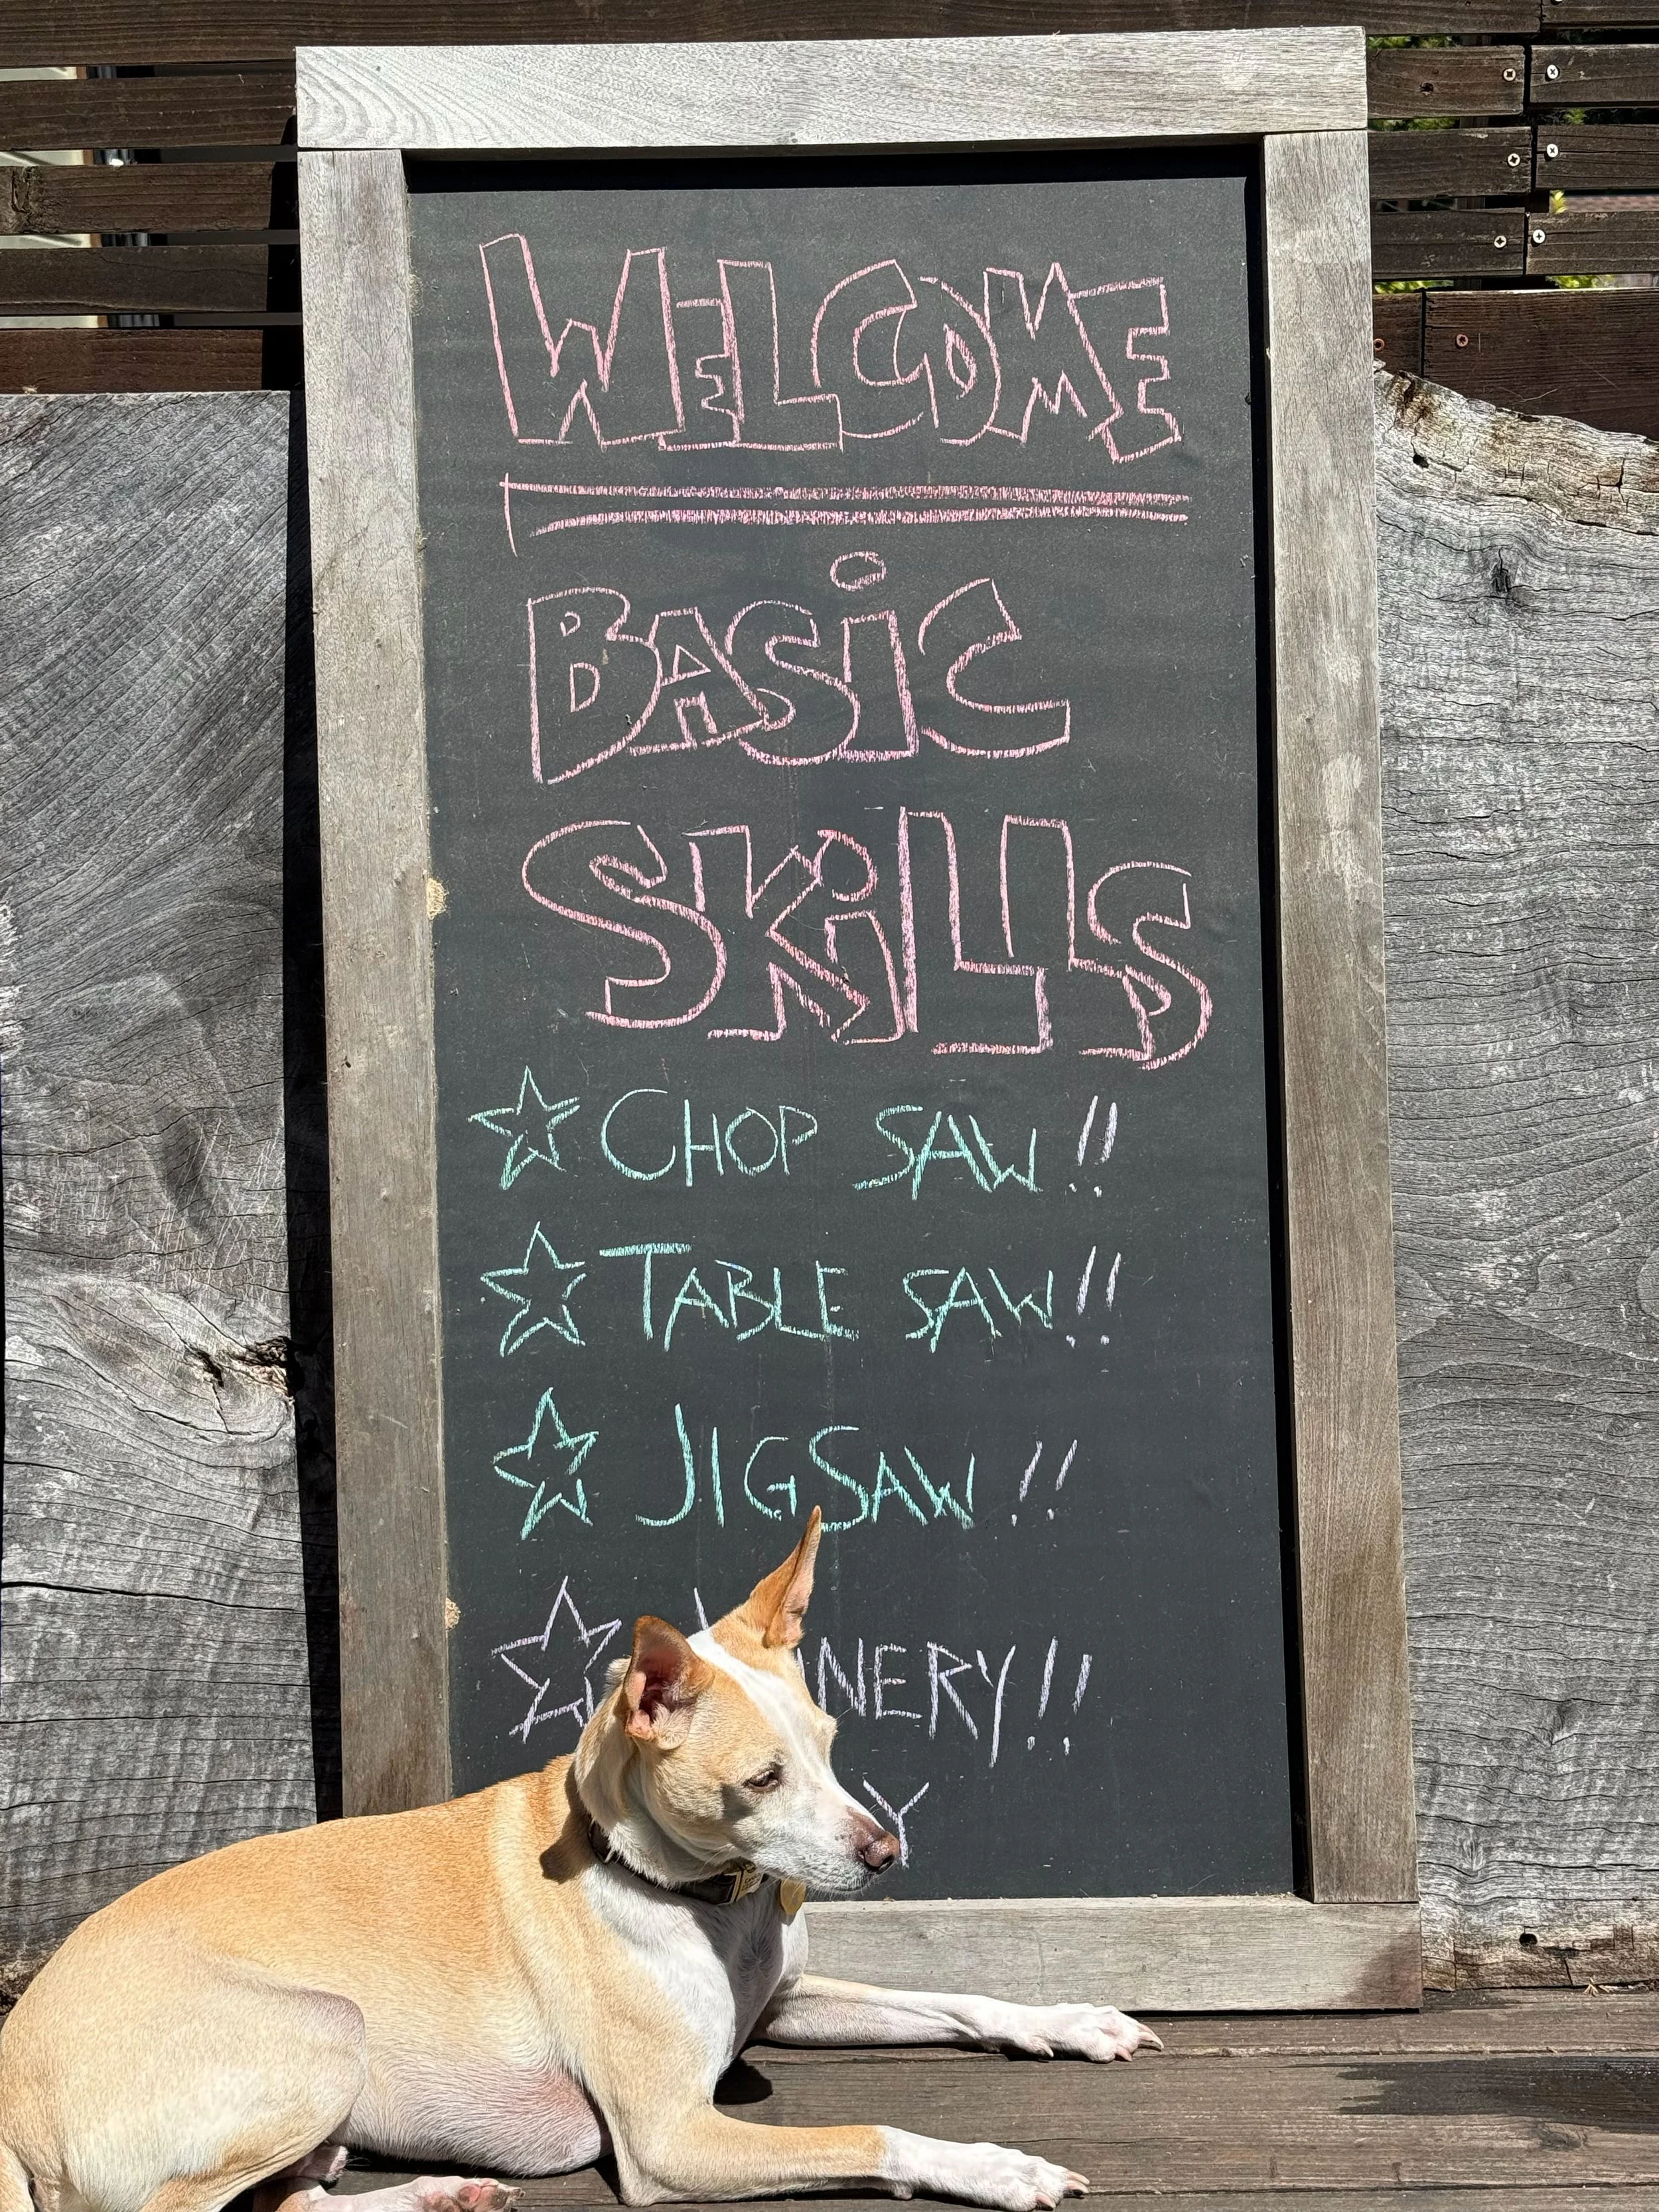 WELCOME
BASiC
SKiLLS
☆ CHOP SAW !!
☆ TABLE SAW !!
☆ JIGSAW !!